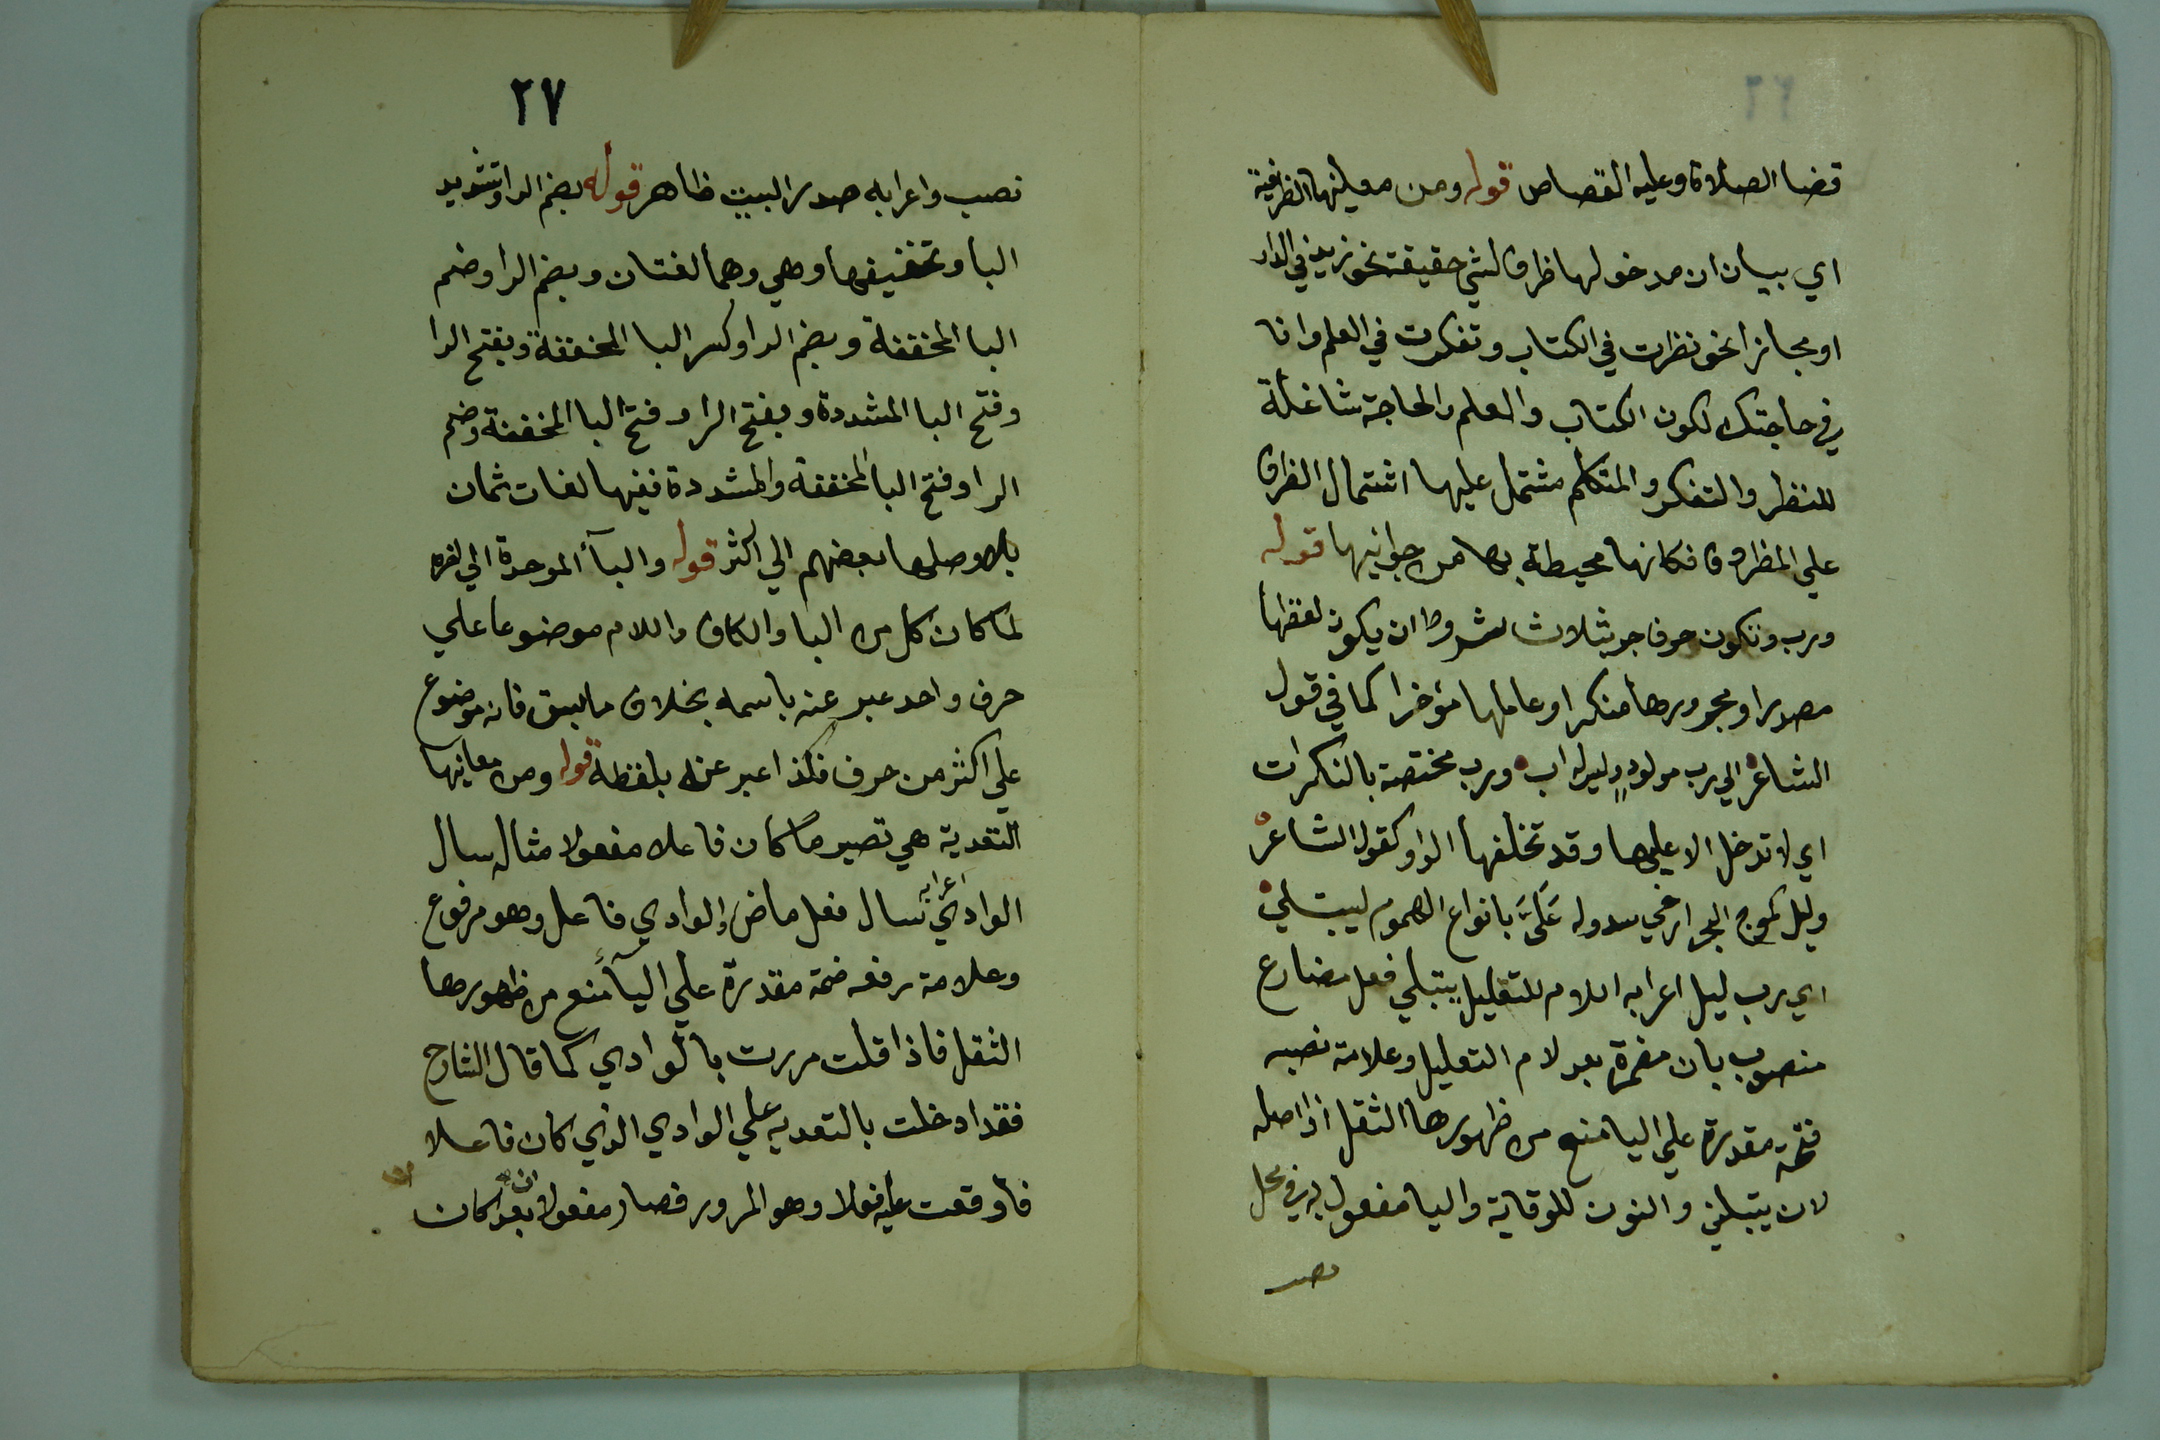 قضا الصلاة وعليه القصاص قوله ومن معانيها الظرفية
اي بيان ان مدخولها ظرف لشي حقيقة نحو زيد في الدار
او مجازا نحو نظرت في الكتاب وتفكرت في العلم وانا
في حاجتك لكون الكتاب والعلم والحاجة شاغلة
للنظر والتفكر والمتكلم مشتمل عليها اشتمال الظرف
علي المظروف فكانها محيطة بها من جوانبها قوله
ورب وتكون حرف جر بثلاث شروط ان يكون لفظها
مصدرا ومجرورها منكرا وعاملها مؤخرا كما في قول
الشاعر الي رب مولود وليس له اب ورب مختصة بالنكرات
اي لا تدخل الا عليها وقد تخلفها الواو كقول الشاعر
وليل كموج البحر ارخي سدوله عَلَيَّ بانواع الهموم ليبتلي
اي رب ليل اعرابه اللام للتعليل يبتلي فعل مضارع
منصوب بان مضمرة بعد لام التعليل وعلامة نصبه
فتحة مقدرة علي اليا منع من ظهورها الثقل اذ اصله
لان يبتلين والنون للوقاية واليا مفعول به في محل
نصب
٢٧
نصب واعرابه صدر البيت ظاهر قوله بضم الرا وتشديد
البا وتخفيفها وهي وهما لغتان وبضم الرا وضم
البا المخففة وبضم الرا وكسر البا المخففة وبفتح الرا
وفتح البا المشددة وبفتح الرا وفتح البا المخففة وضم
الرا وفتح البا المخففة والمشددة ففيها لغات ثمان
بل وصلها بعضهم الي اكثر قوله والبآ الموحدة الي اخره
لما كان كل من البا والكاف واللام موضوعا علي
حرف واحد عبر عنه باسمه بخلاف ما سبق فانه موضوع
علي اكثر من حرف فلذا عبر عنه بلفظه قوله ومن معانيها
التعدية هي تصير ما كان فاعلا مفعولا مثاله سال
الوادي اعرابه سال فعل ماض والوادي فاعل وهو مرفوع
وعلامة رفعه ضمة مقدرة علي اليآ منع من ظهورها
الثقل فاذا قلت مررت بالوادي كما قال الشارح
فقد ادخلت بالتعدية علي الوادي الذي كان فاعلا
فأوقعت عليه فعلا وهو المرور فصار مفعولا بعد ان كان